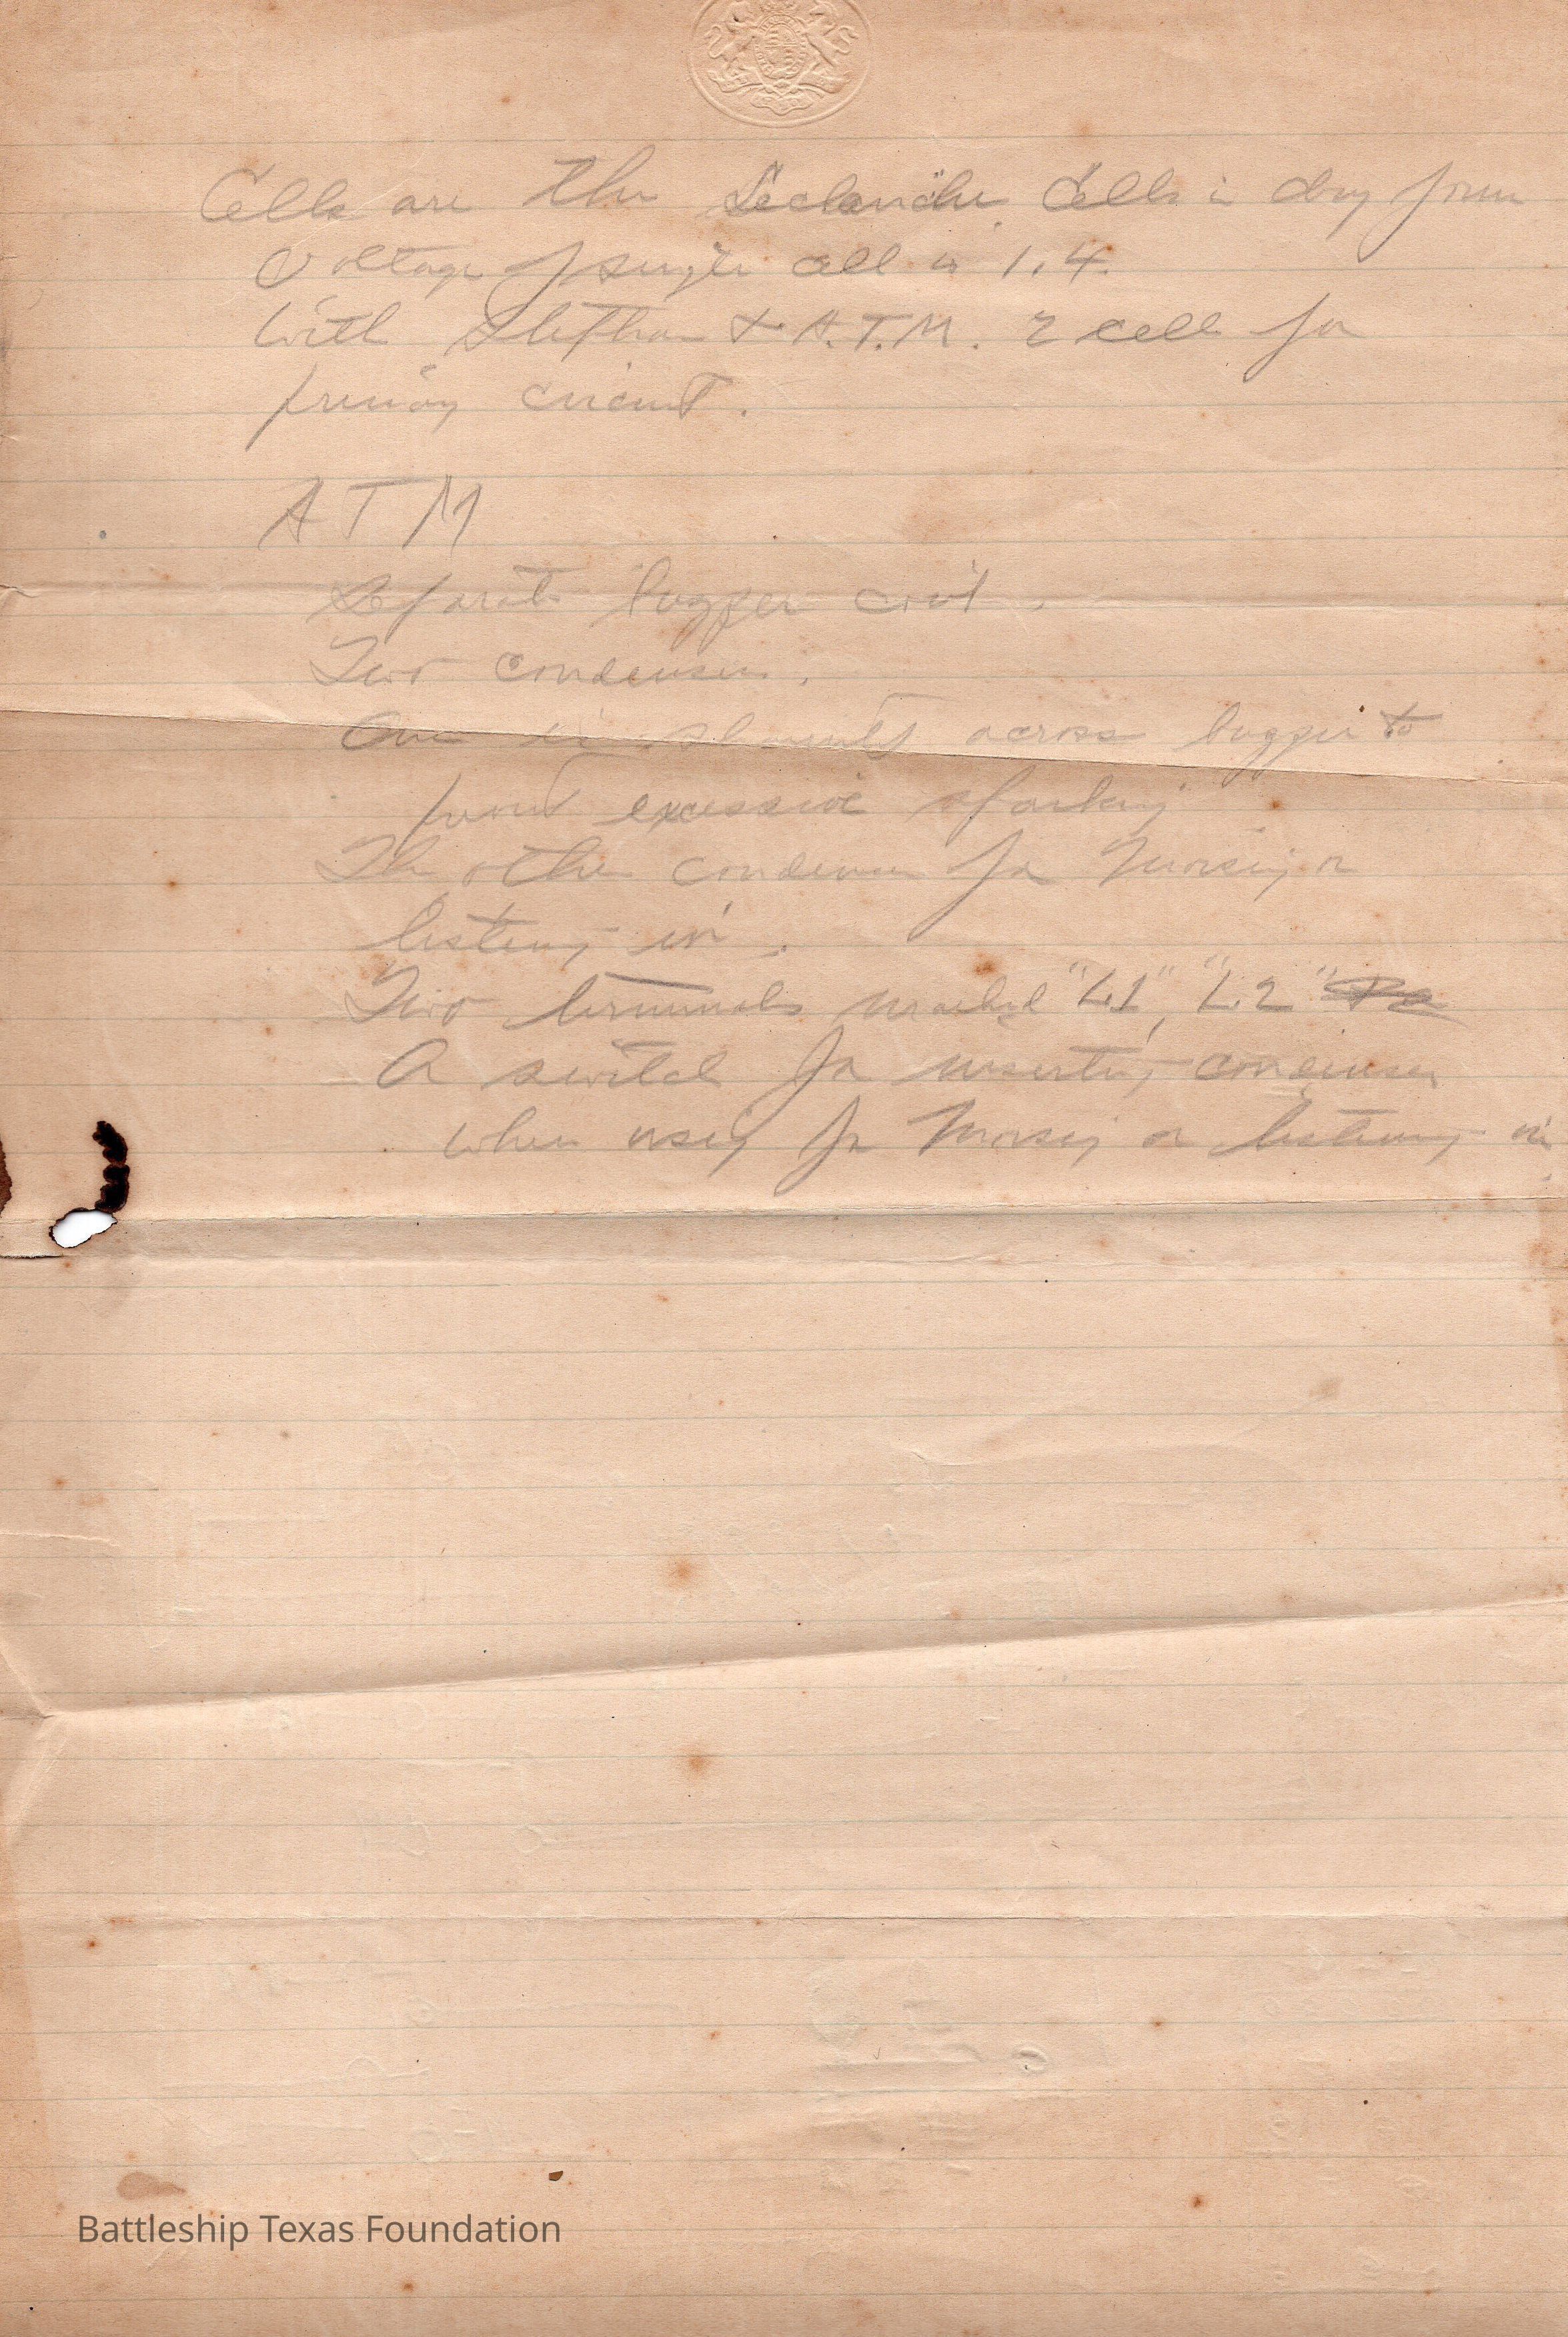 Cells are the Leclanche Cells in dry form
Voltage of single cell is 1.4.
With Stephan & A.T.M. 2 cell for
primary circuit.
A T M
Separate buzzer coil.
Two condensers.
One is shunted across buzzer to
prevent excessive sparking
The other condenser for Morsing or
listening in.
Two terminals marked "L1", "L2"
A switch for inserting condenser
when using for Morsing or listening in.
Battleship Texas Foundation